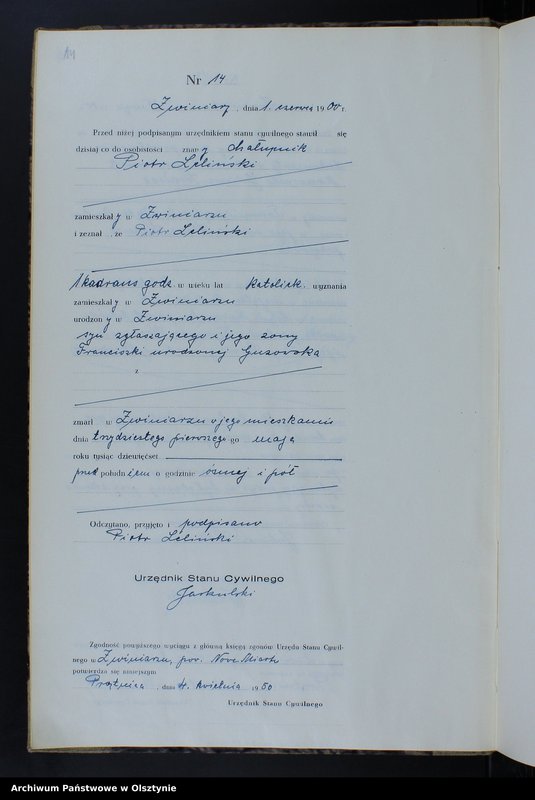 14
Nr 14
Zwiniarz, dnia 1. czerwca 1900 r.
Przed niżej podpisanym urzędnikiem stanu cywilnego stawił się
dzisiaj co do osobistości znany chałupnik
Piotr Leliński
zamieszkały w Zwiniarzu
i zeznał, że Piotr Leliński
1 kadrans godz. w wieku lat katolick. wyznania
zamieszkały w Zwiniarzu
urodzony w Zwiniarzu
syn zgłaszającego i jego żony
Franciszki urodzonej Guzowska
z
zmarł w Zwiniarzu w jego mieszkaniu
dnia trzydziestego pierwszego go maja
roku tysiąc dziewięćset
przed południem o godzinie ósmej i pół
Odczytano, przyjęto i podpisano
Piotr Leliński
Urzędnik Stanu Cywilnego
Jaskulski
Zgodność powyższego wyciągu z główną księgą zgonów Urzędu Stanu Cywil-
nego w Zwiniarzu, pow. Nowe Miasto
potwierdza się niniejszym
dnia 4. kwietnia 1950
Urzędnik Stanu Cywilnego
Archiwum Państwowe w Olsztynie